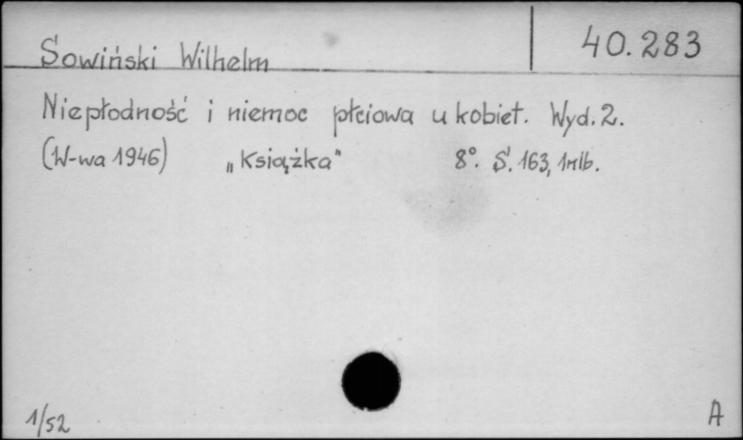 Sowiński Wilhelm
40.283
Niepłodność i niemoc płciowa u kobiet. Wyd. 2.
(W-wa 1946) „Książka" 8°. S. 163, 1nlb.
1/52
A